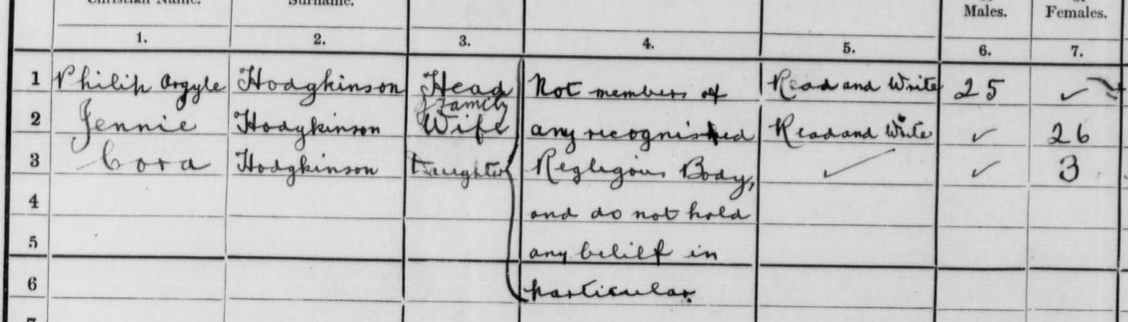 Christian Name. Surname. of Males. of Females.
1. 2. 3. 4. 5. 6. 7.
1 Philip Argyle Hodgkinson Head of Family Not members of Read and Write 25 ✓
2 Jennie Hodgkinson Wife any recognished Read and Write ✓ 26
3 Cora Hodgkinson Daughter Regligious Body, ✓ ✓ 3
4 and do not hold
5 any belief in
6 particular.